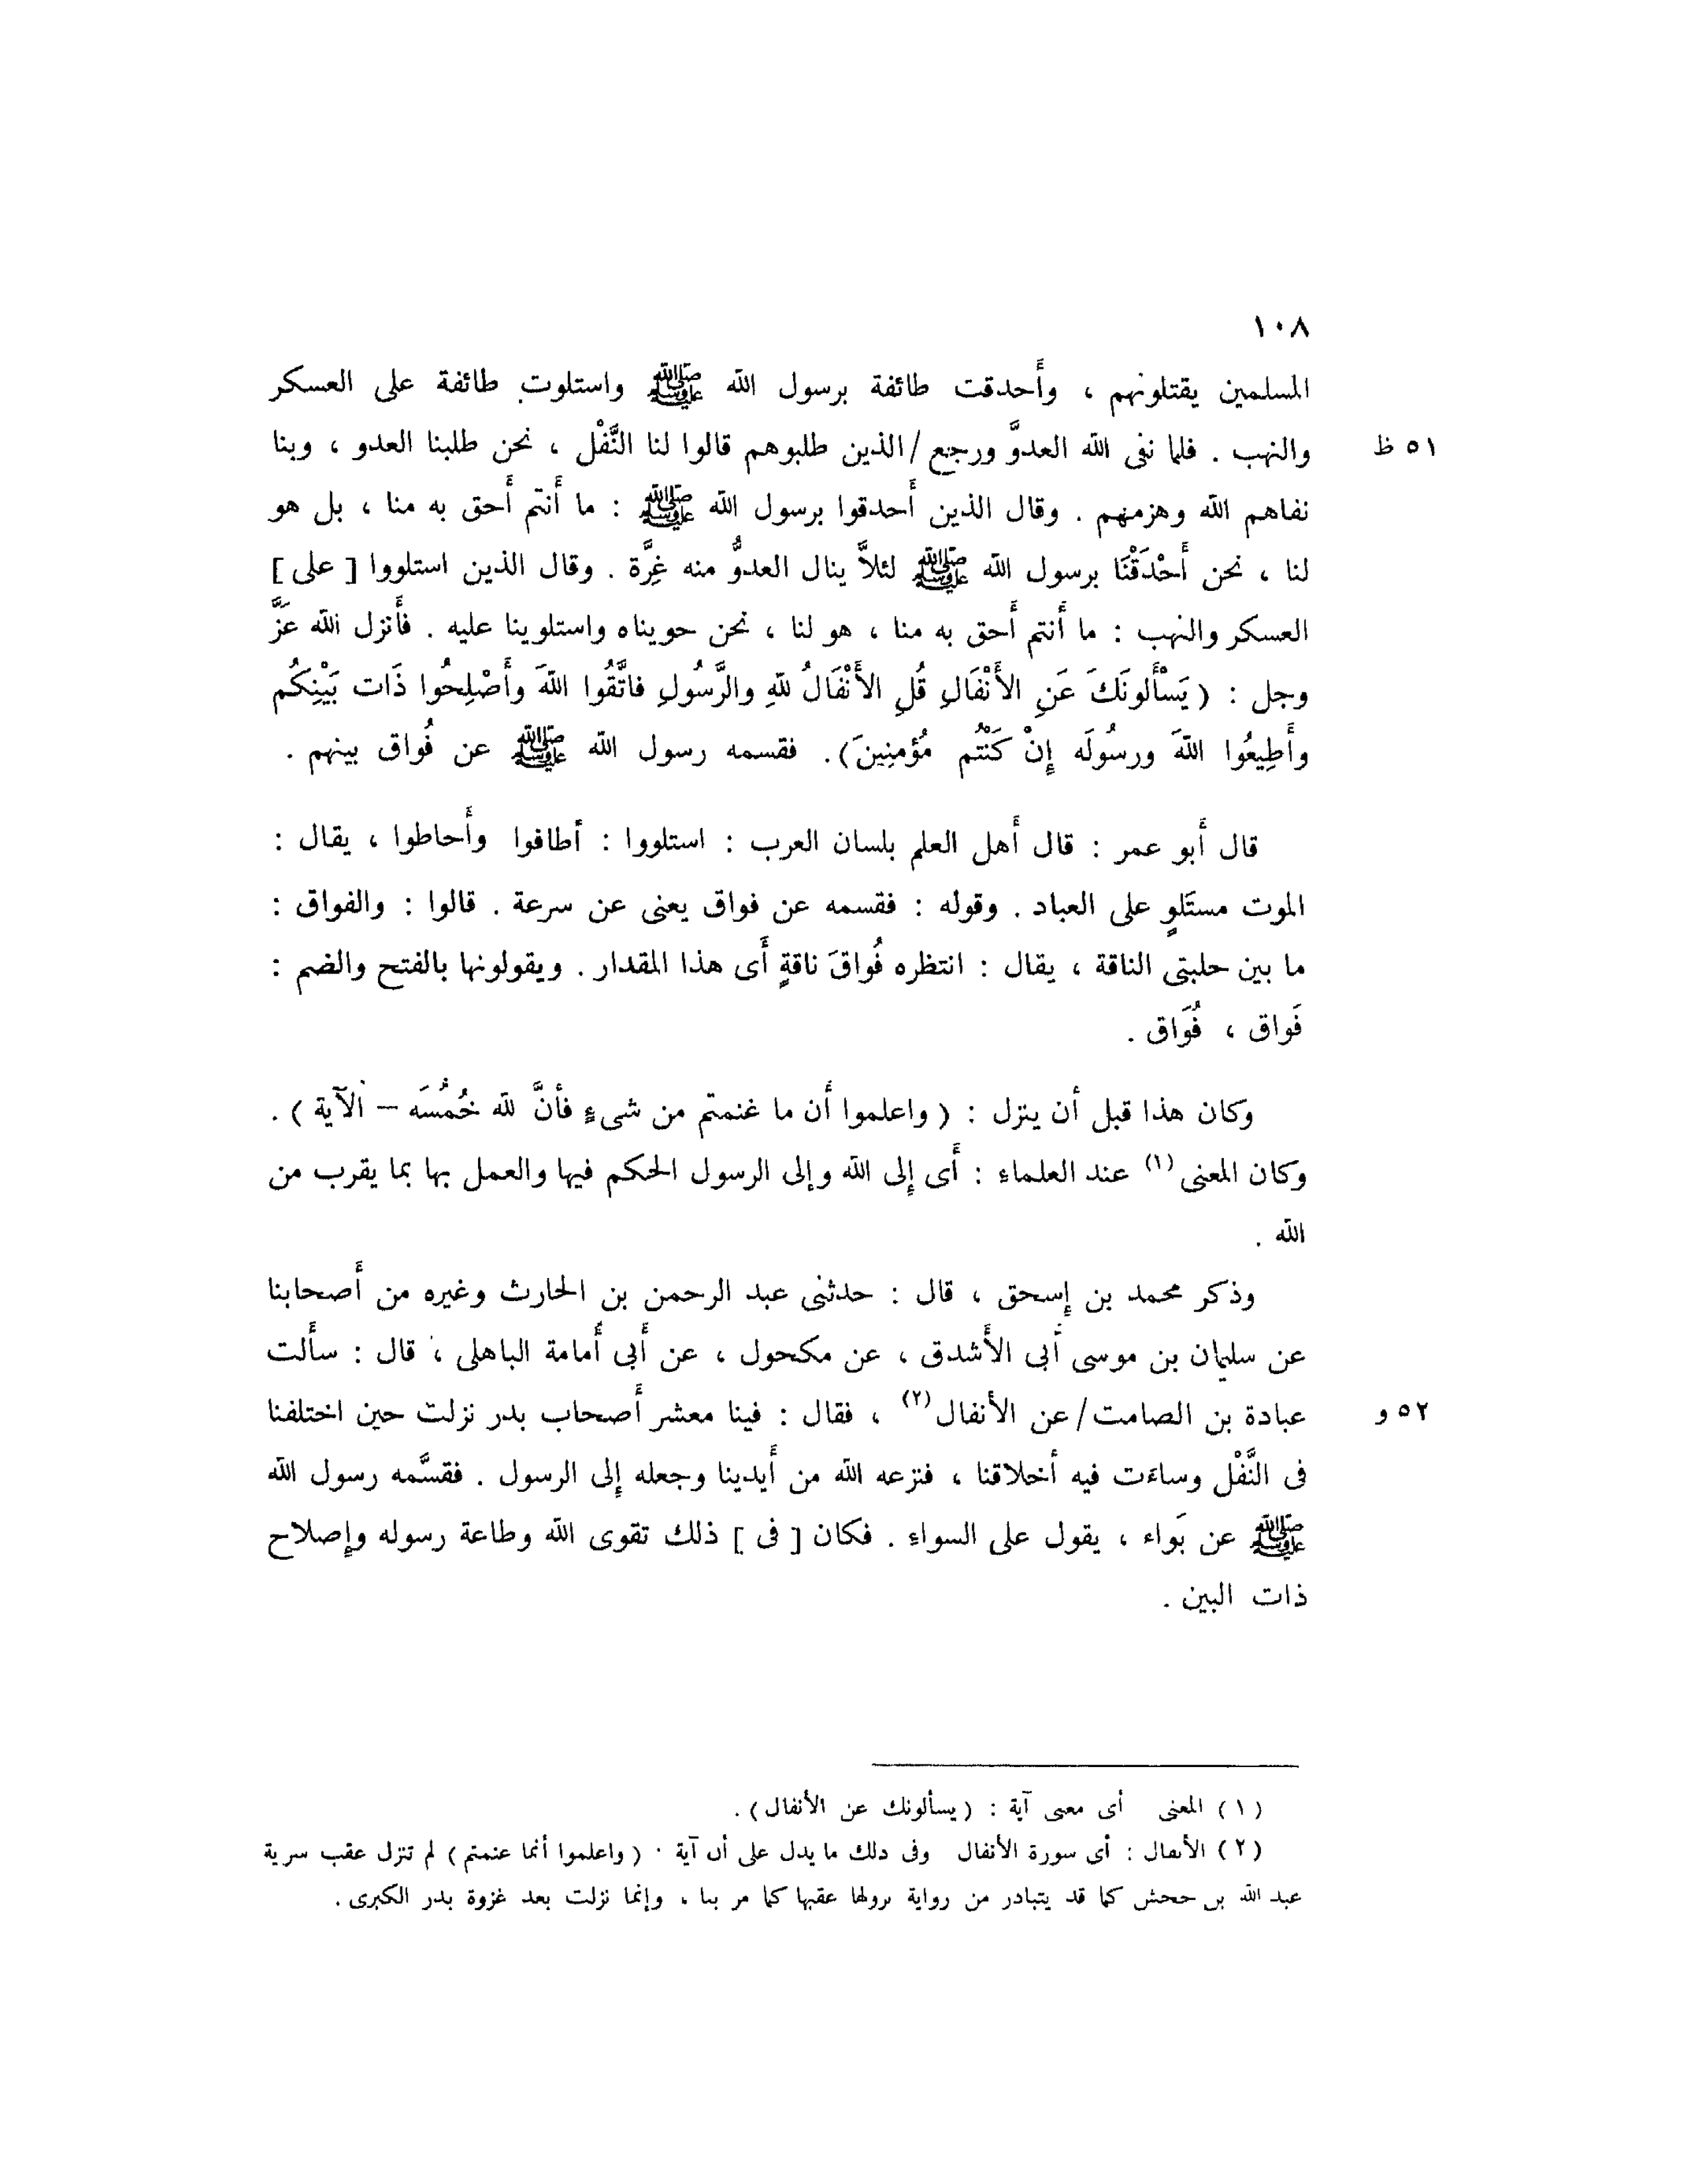 ١٠٨
المسلمين يقتلونهم ، وأَحدقت طائفة برسول الله ﷺ واستلوت طائفة على العسكر
والنهب . فلما نفى الله العدوَّ ورجع /الذين طلبوهم قالوا لنا النَّفْل ، نحن طلبنا العدو ، وبنا
٥١ ظ
نفاهم الله وهزمهم . وقال الذين أَحدقوا برسول الله ﷺ : ما أَنتم أَحق به منا ، بل هو
لنا ، نحن أَحْدَقْنَا برسول الله ﷺ لئلاَّ ينال العدوُّ منه غِرَّة . وقال الذين استلووا [ على ]
العسكر والنهب : ما أَنتم أَحق به منا ، هو لنا ، نحن حويناه واستلوينا عليه . فأَنزل الله عَزَّ
وجل : ( يَسْأَلونَكَ عَنِ الأَنْفَالِ قُلِ الأَنْفَالُ للهِ والرَّسُولِ فاتَّقُوا اللهَ وأَصْلِحُوا ذَات بَيْنِكُم
وأَطِيعُوا اللهَ ورسُولَه إِنْ كَنْتُم مُؤمنِينَ). فقسمه رسول الله ﷺ عن فُواق بينهم .
قال أَبو عمر : قال أَهل العلم بلسان العرب : استلووا : أطافوا وأَحاطوا ، يقال :
الموت مستَلوٍ على العباد . وقوله : فقسمه عن فواق يعنى عن سرعة . قالوا : والفواق :
ما بين حلبتى الناقة ، يقال : انتظره فُواقَ ناقةٍ أَى هذا المقدار . ويقولونها بالفتح والضم :
فَواق ، فُوَاق .
وكان هذا قبل أن ينزل : ( واعلموا أَن ما غنمتم من شىءٍ فأنَّ لله خُمُسَه – الآية ) .
وكان المعنى (١) عند العلماءِ : أَى إِلى الله وإلى الرسول الحكم فيها والعمل بها بما يقرب من
الله .
وذكر محمد بن إِسحق ، قال : حدثنى عبد الرحمن بن الحارث وغيره من أَصحابنا
عن سليمان بن موسى أَبى الأَشدق ، عن مكحول ، عن أَبى أُمامة الباهلى ، قال : سأَلت
عبادة بن الصامت/ عن الأنفال (٢) ، فقال : فينا معشر أَصحاب بدر نزلت حين اختلفنا
٥٢ و
فى النَّفْل وساءَت فيه أخلاقنا ، فنزعه الله من أَيدينا وجعله إِلى الرسول . فقسَّمه رسول الله
ﷺ عن بَواء ، يقول على السواءِ . فكان [ فى ] ذلك تقوى الله وطاعة رسوله وإِصلاح
ذات البين .
( ١ ) المعنى أى معنى آية : ( يسألونك عن الأنفال ) .
( ٢ ) الأنفال : أى سورة الأنفال وفى ذلك ما يدل على أن آية · ( واعلموا أنما غنمتم ) لم تنزل عقب سرية
عبد الله بن جحش كما قد يتبادر من رواية نزولها عقبها كما مر بنا ، وإنما نزلت بعد غزوة بدر الكبرى .